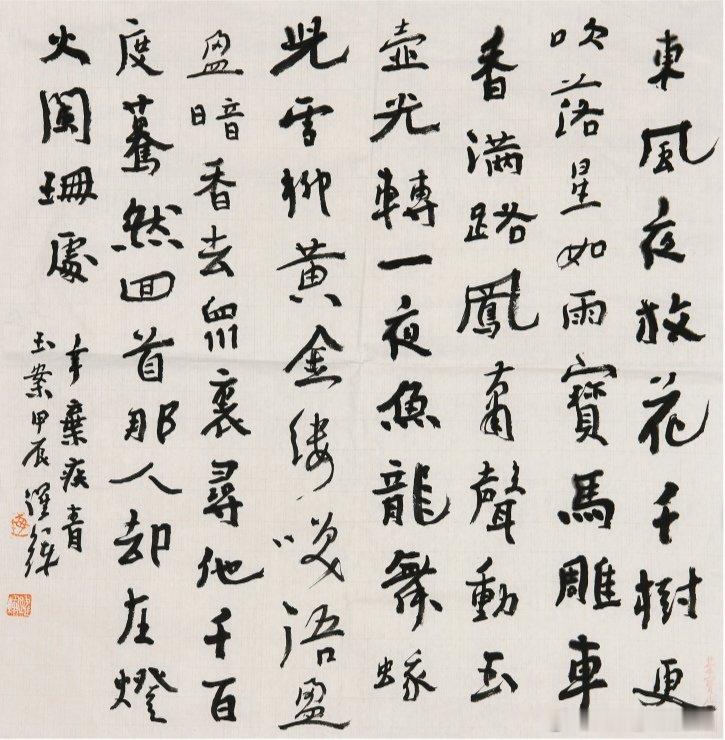 東風夜放花千樹更
吹落星如雨寶馬雕車
香滿路鳳簫聲動玉
壺光轉一夜魚龍舞蛾
兒雪柳黃金縷笑語盈
盈暗香去衆裏尋他千百
度驀然回首那人却在燈
火闌珊處
辛棄疾青
玉案甲辰